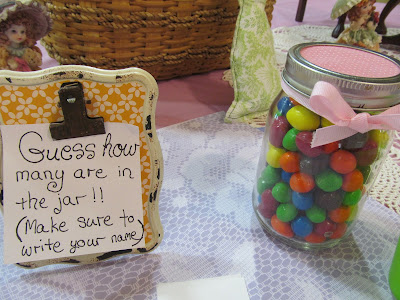 Guess how
many are in
the jar!!
(Make sure to
write your name)